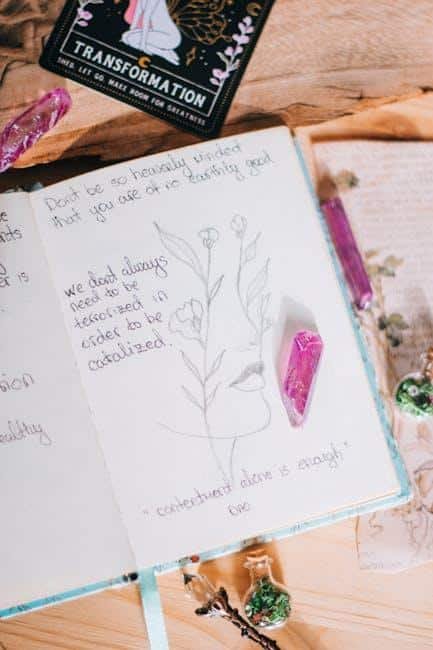 TRANSFORMATION
SHED. LET GO. MAKE ROOM FOR GREATNESS
Don't be so heavenly minded
that you are of no earthly good
we don't always
need to be
terrorized in
order to be
catalized.
"contentment alone is enough"
is
ealthy